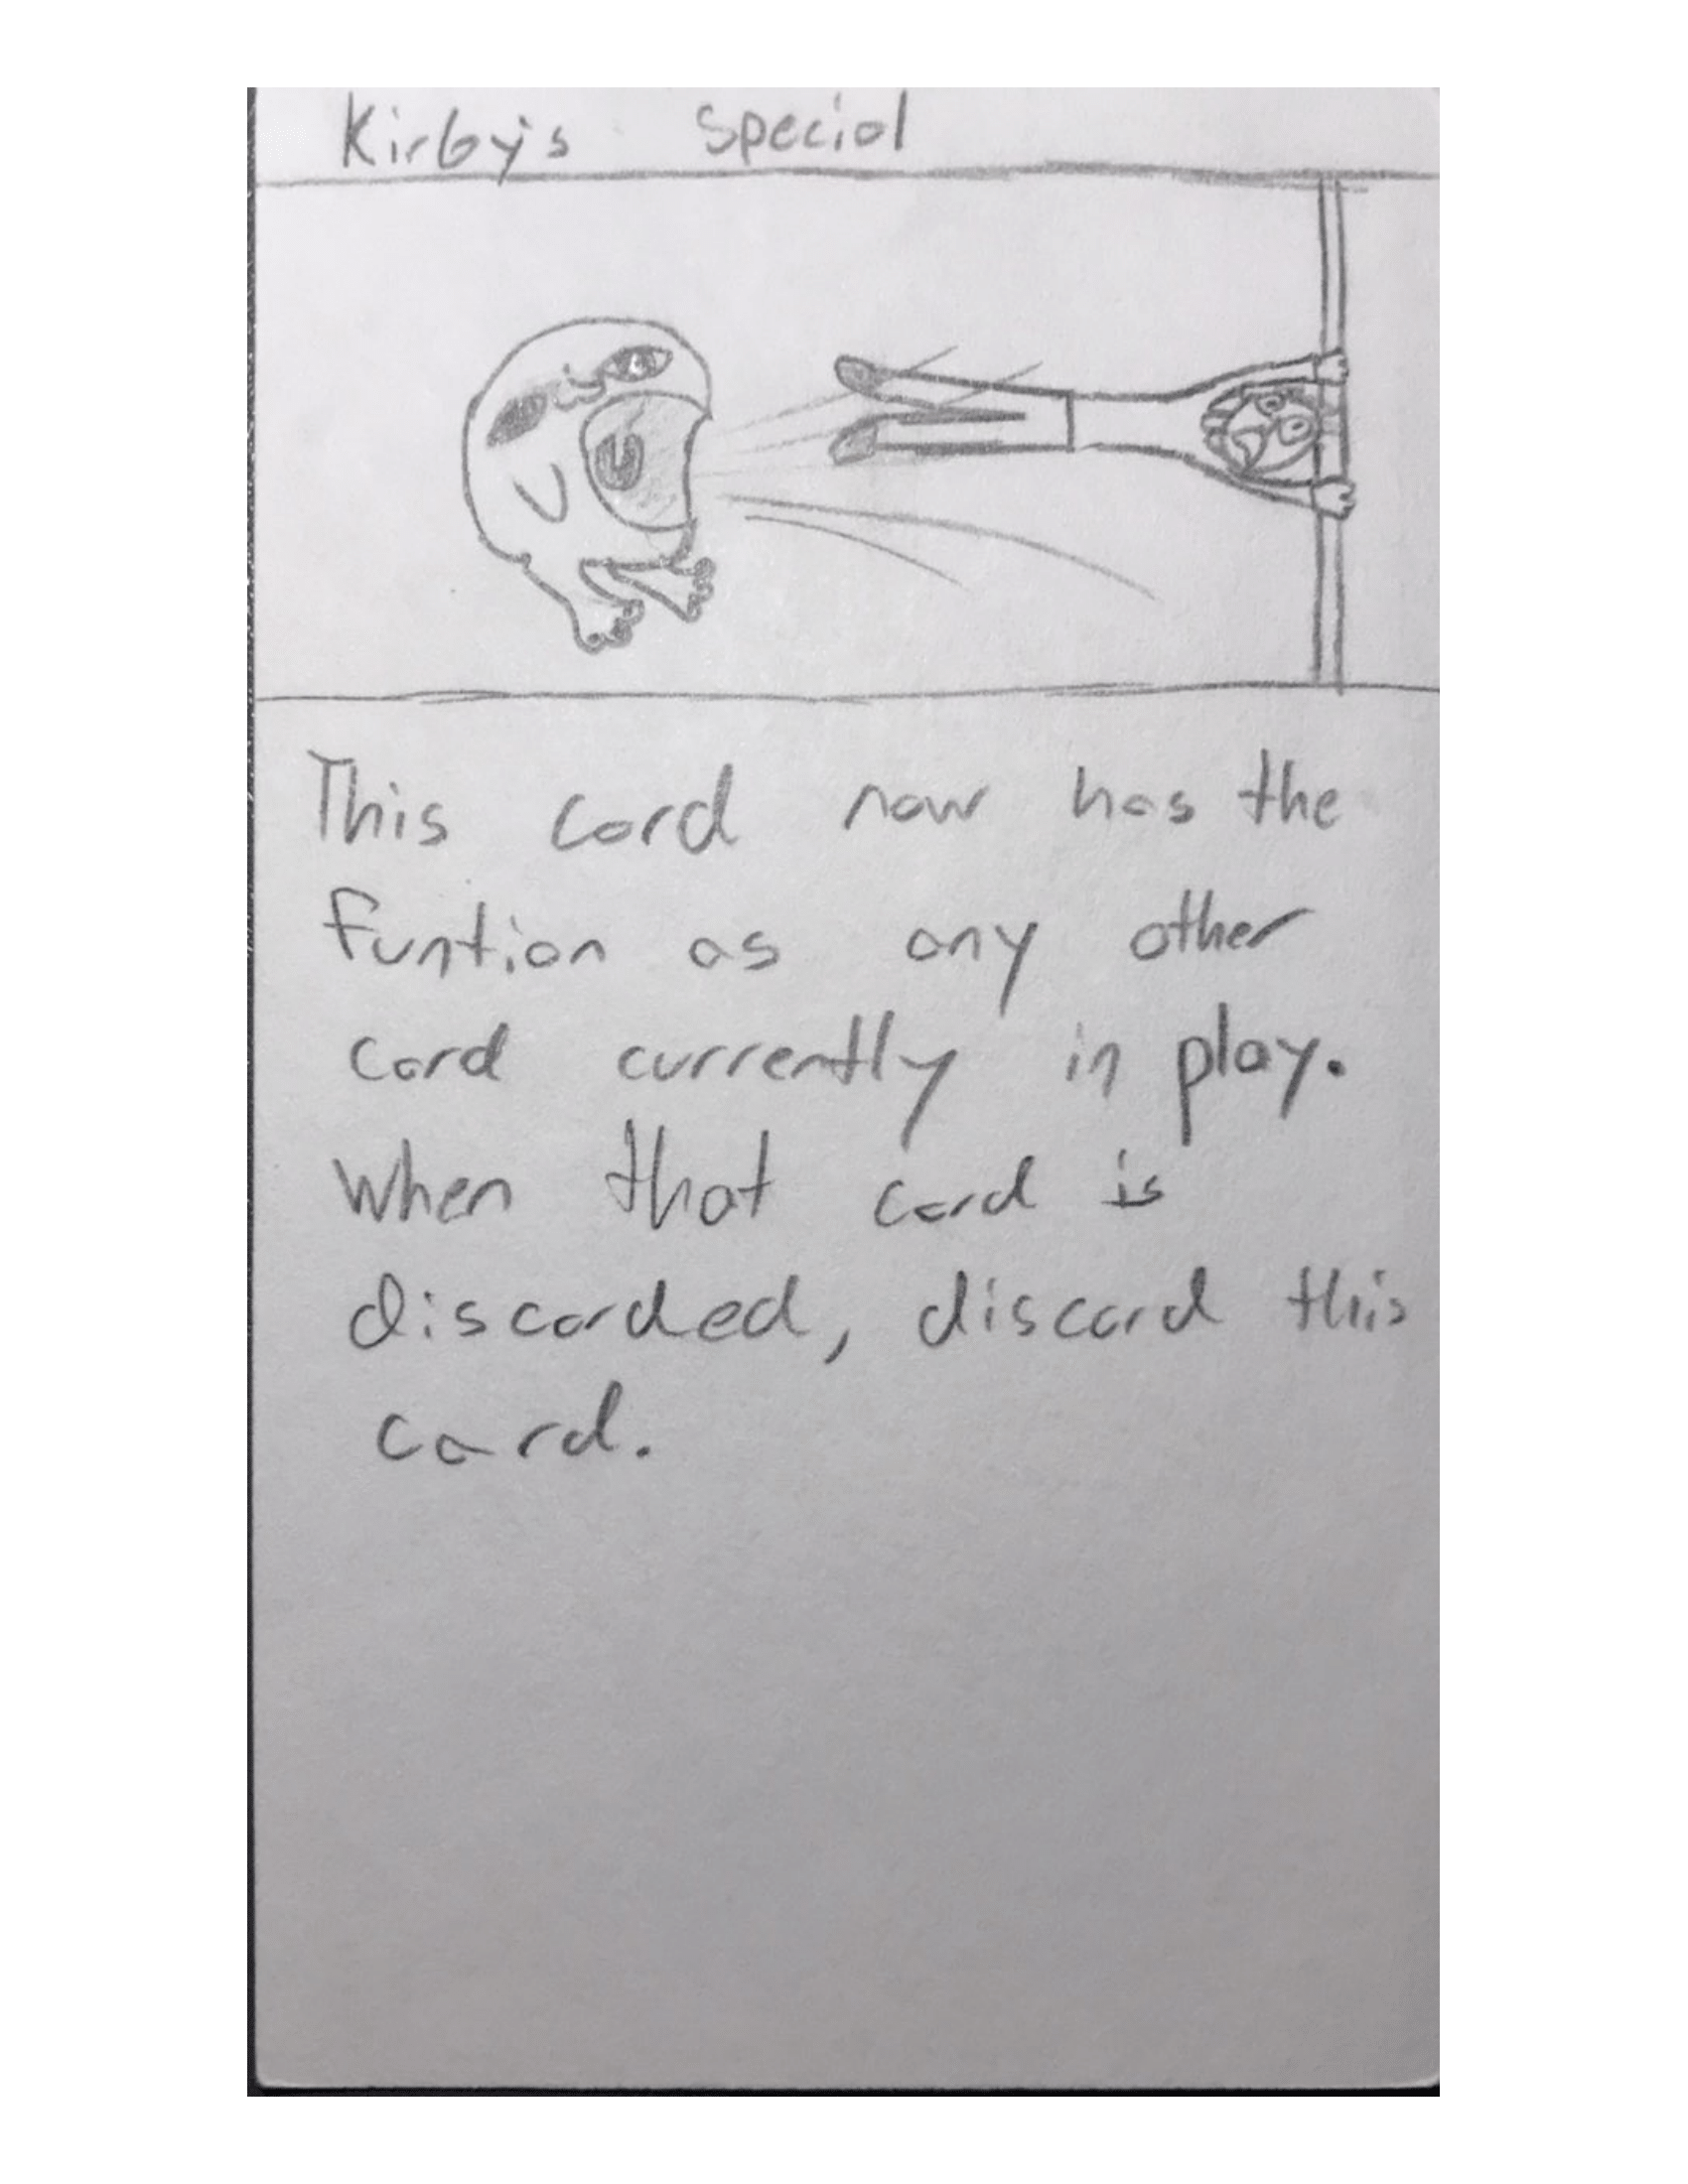 Kirby's Special
This card now has the
funtion as any other
card currently in play.
When that card is
discarded, discard this
card.